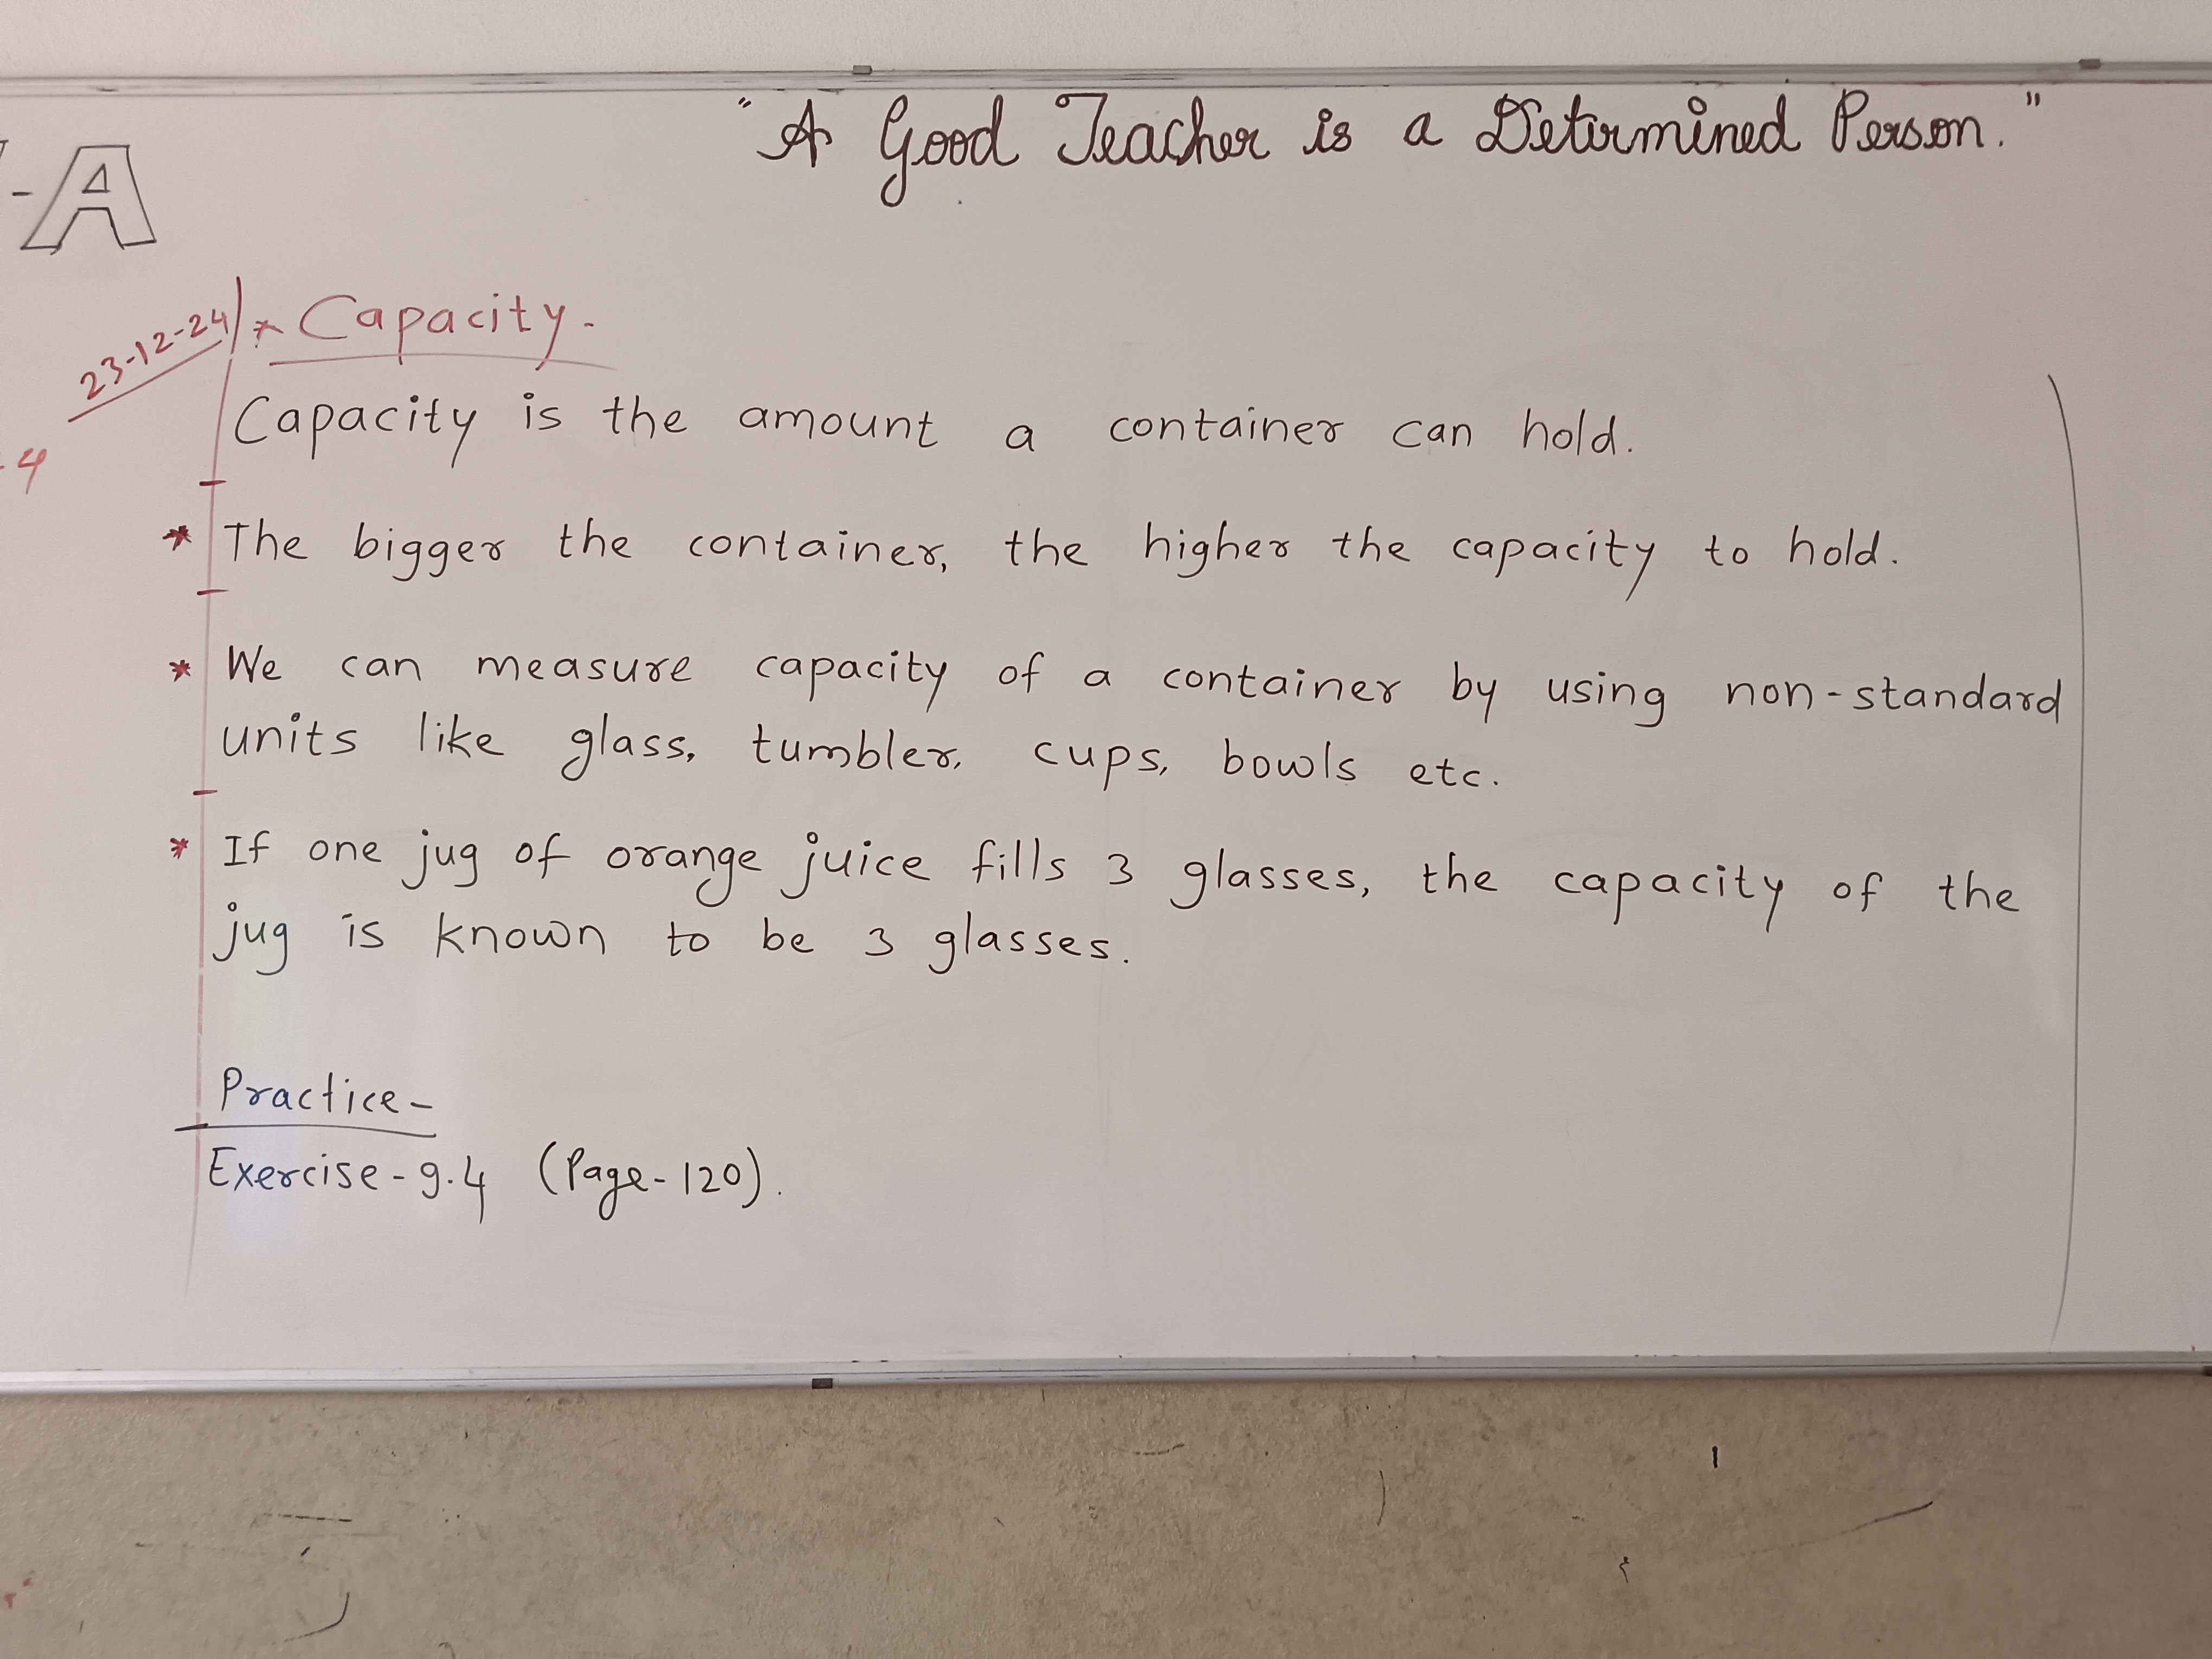 "A Good Teacher is a Determined Person."
-A
23-12-24
* Capacity-
Capacity is the amount a container can hold.
4
* The bigger the container, the higher the capacity to hold.
* We can measure capacity of a container by using non-standard
units like glass, tumbler, cups, bowls etc.
* If one jug of orange juice fills 3 glasses, the capacity of the
jug is known to be 3 glasses.
Practice-
Exercise-9.4 (Page-120).